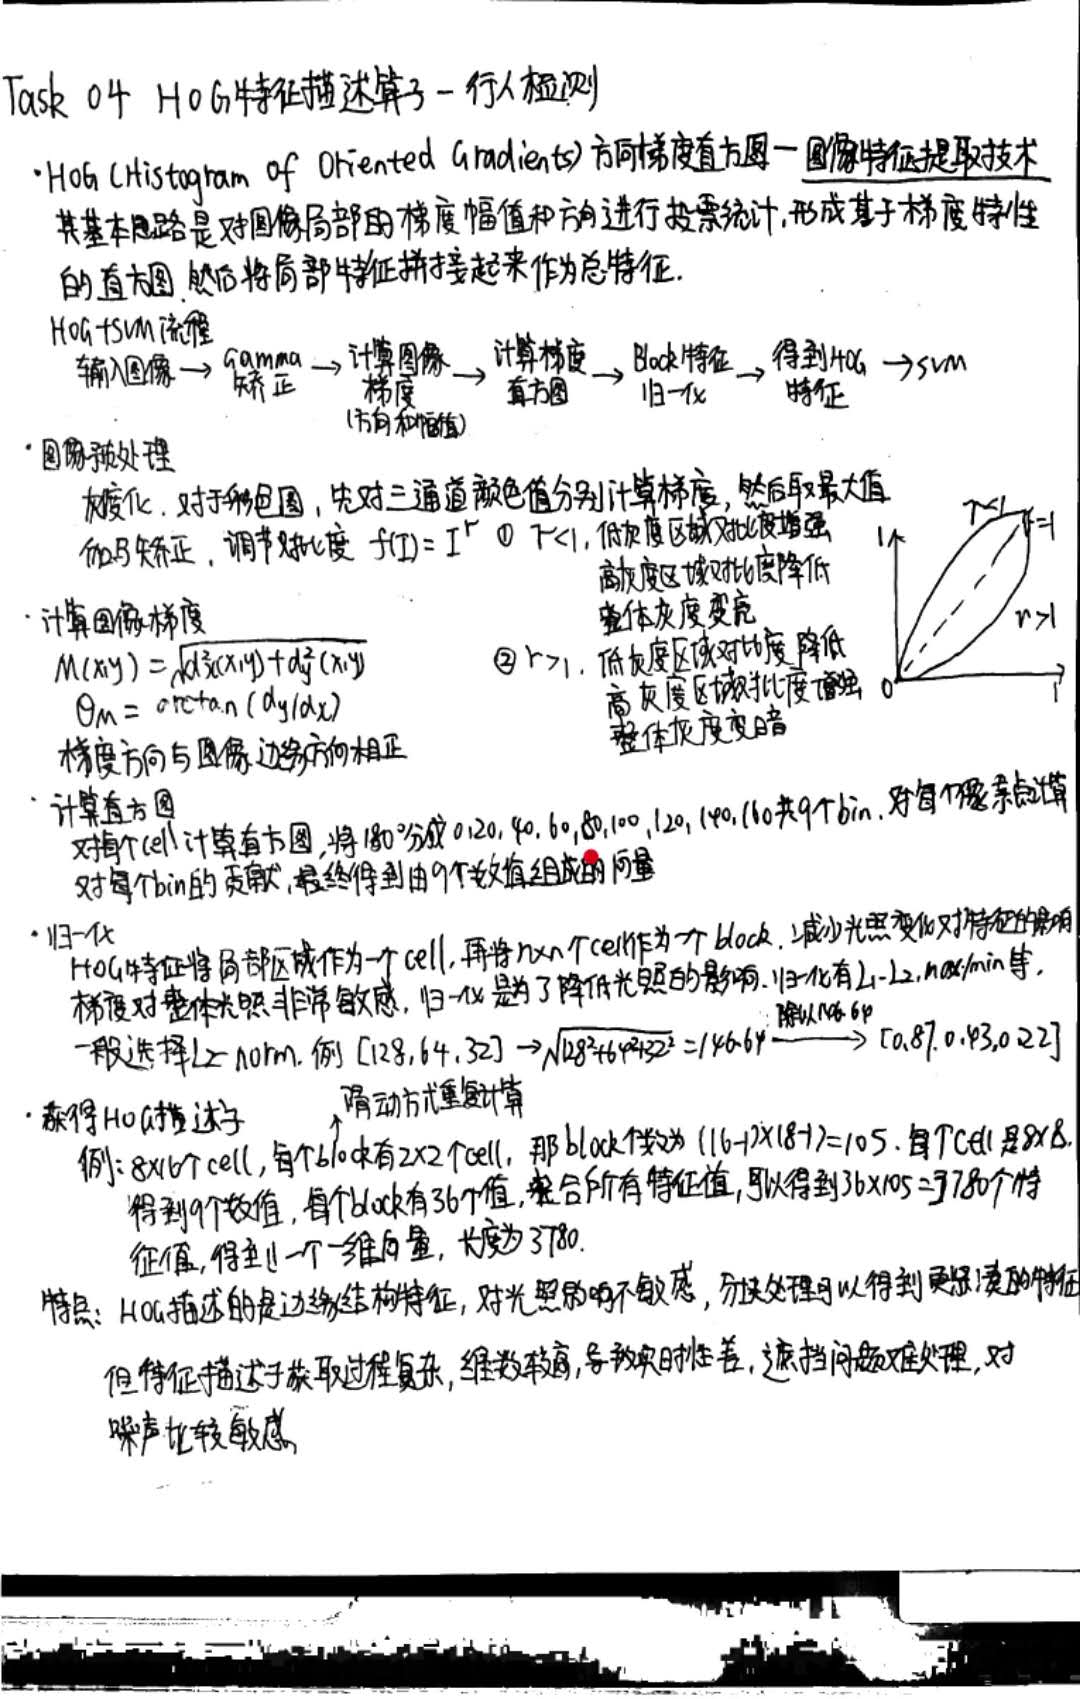 Task 04 HOG特征描述算子-行人检测
·HOG (Histogram of Oriented Gradients) 方向梯度直方图-图像特征提取技术
其基本思路是对图像局部的梯度幅值和方向进行投票统计,形成基于梯度特性
的直方图.然后将局部特征拼接起来作为总特征.
HOG+SVM流程
输入图像→Gamma矫正→计算图像梯度(方向和幅值)→计算梯度直方图→Block特征归一化→得到HOG特征→SVM
·图像预处理
灰度化.对于彩色图,先对三通道颜色值分别计算梯度,然后取最大值
伽马矫正,调节对比度 f(I)=I^r ① r<1,低灰度区域对比度增强
高灰度区域对比度降低
整体灰度变亮
② r>1,低灰度区域对比度降低
高灰度区域对比度增强
整体灰度变暗
r<1
r=1
r>1
1
0
1
·计算图像梯度
M(x,y)=√dx²(x,y)+dy²(x,y)
θM=arctan(dy/dx)
梯度方向与图像边缘方向相正
·计算直方图
对每个cell计算直方图,将180°分成0,20,40,60,80,100,120,140,160共9个bin.对每个像素点计算
对每个bin的贡献,最终得到由9个数值组成的向量
·归一化
HOG特征将局部区域作为一个cell,再将n×n个cell作为一个block.减少光照变化对特征的影响
梯度对整体光照非常敏感,归一化是为了降低光照的影响.归一化有L1-L2,max/min等,
一般选择L2-norm.例[128,64,32]→√128²+64²+32²=146.64 除以146.64→[0.87,0.43,0.22]
·获得HOG描述子
滑动方式重复计算
例:8×16个cell,每个block有2×2个cell,那block个数为(16-1)×(8-1)=105.每个cell是8×8.
得到9个数值,每个block有36个值,整合所有特征值,可以得到36×105=3780个特
征值,得到一个一维向量,长度为3780.
特点:HOG描述的是边缘结构特征,对光照影响不敏感,分块处理可以得到更紧凑的特征
但特征描述子获取过程复杂,维数较高,导致实时性差,遮挡问题难处理,对
噪声比较敏感